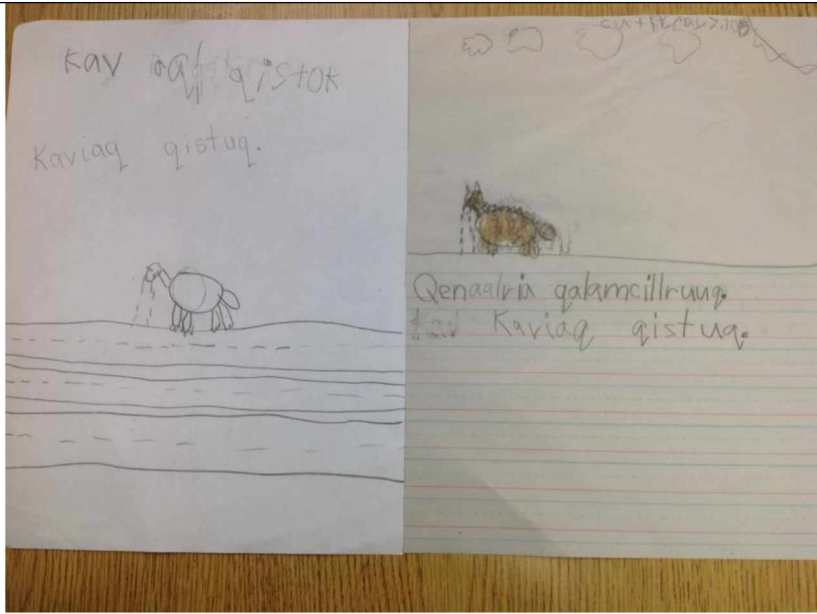 Kav aq qistok
Kaviaq qistuq.
Qenaalria qalamcillruuq.
Kaviaq qistuq.